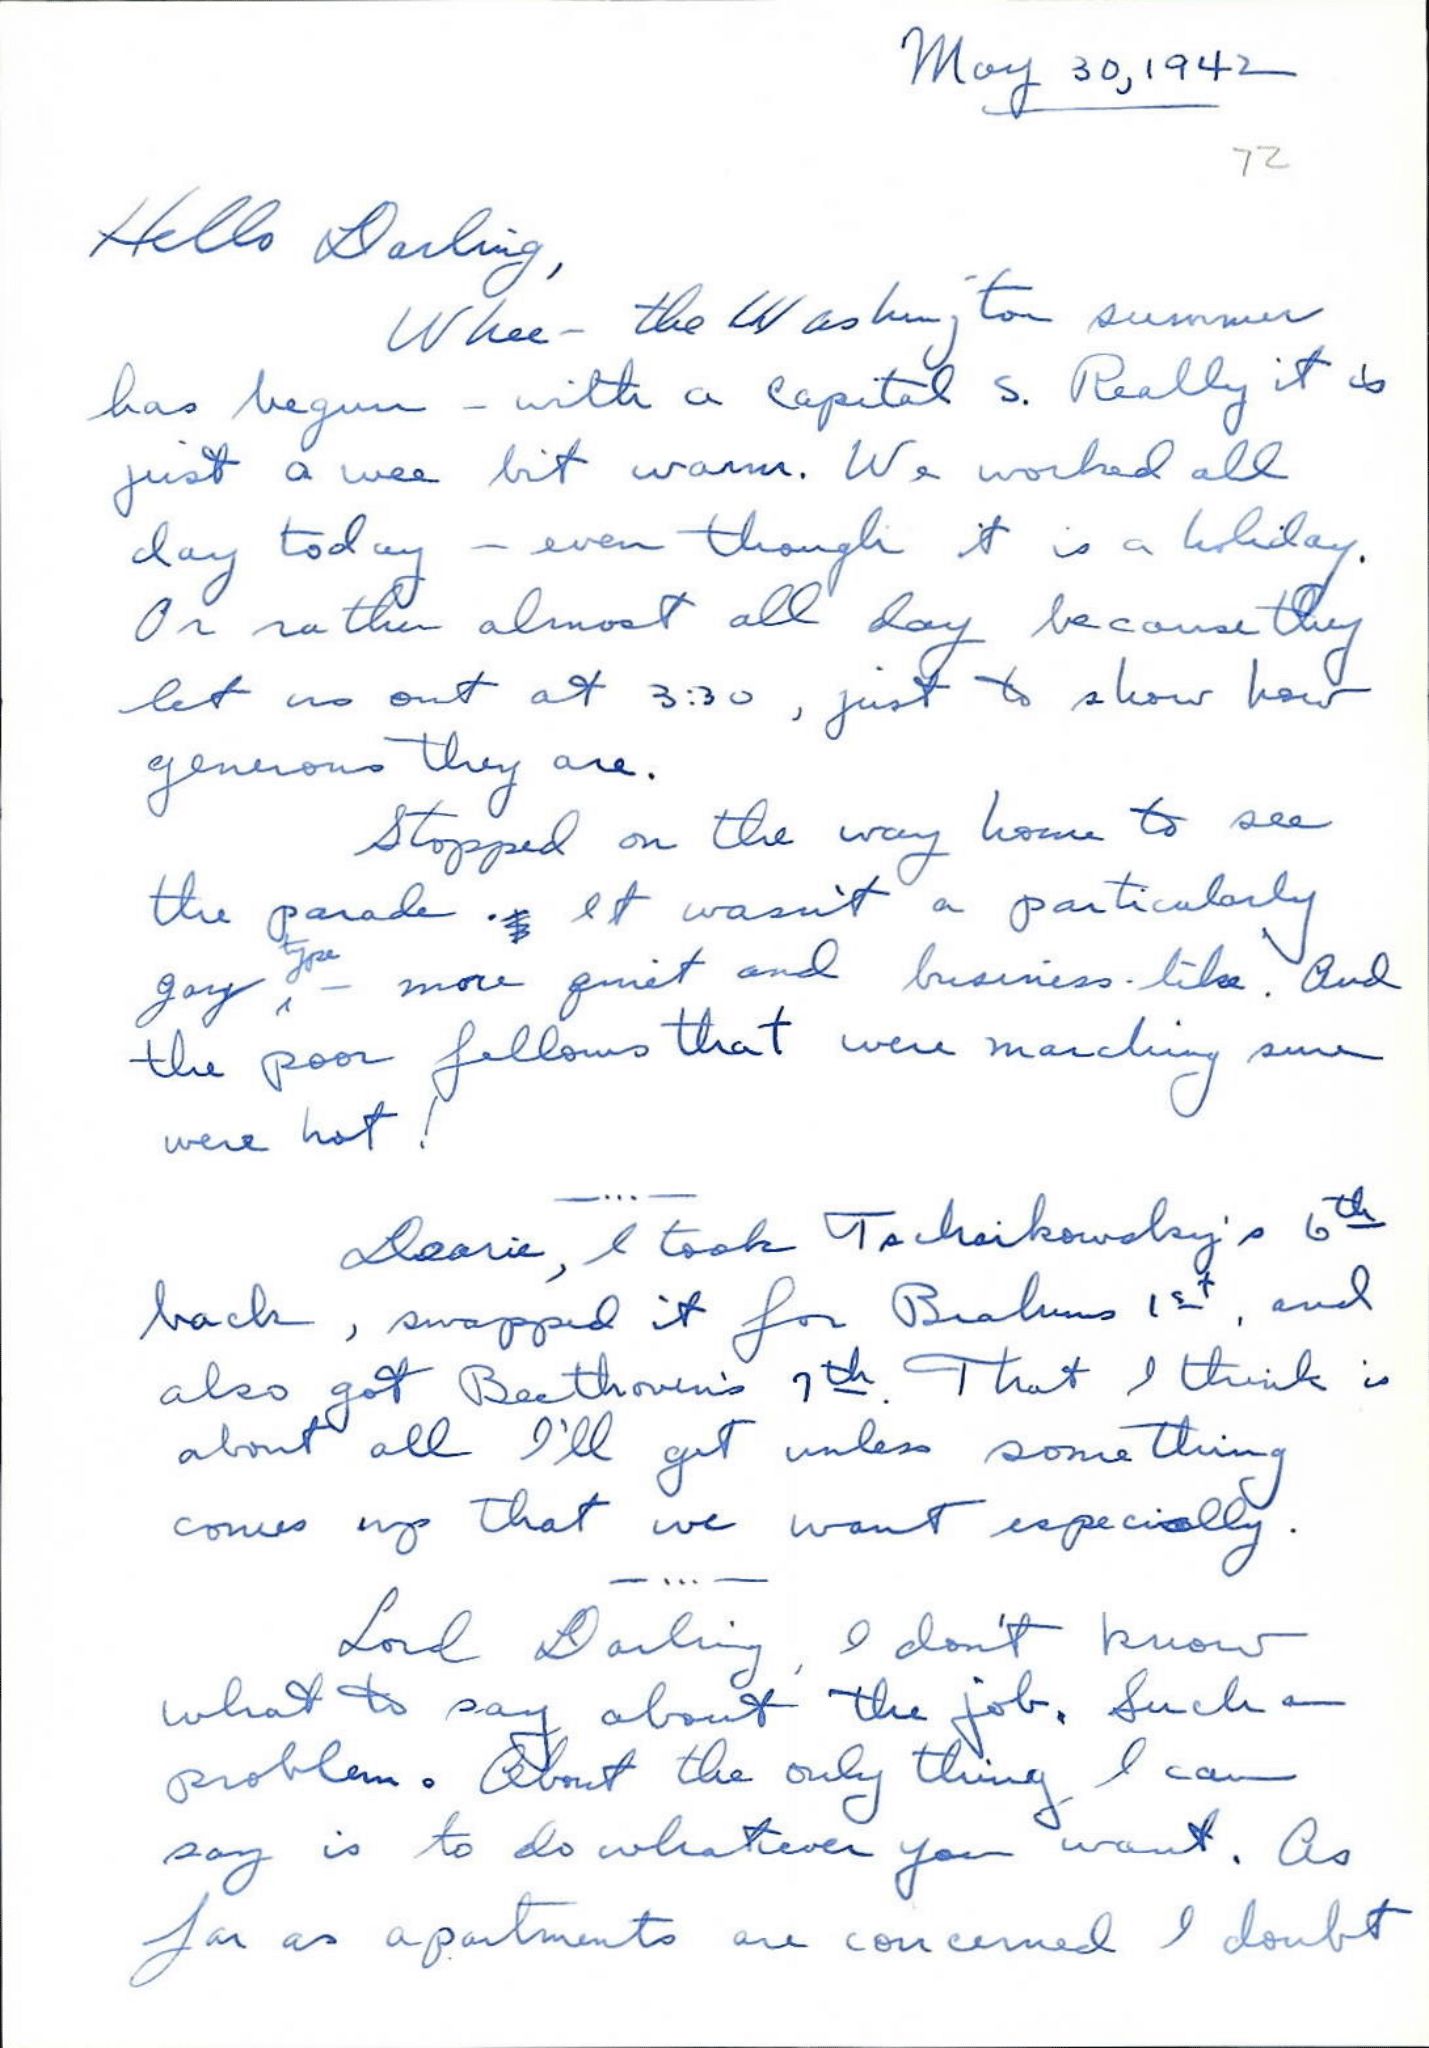 May 30, 1942
72
Hello Darling,
Whee - the Washington summer
has begun - with a capital S. Really it is
just a wee bit warm. We worked all
day today - even though it is a holiday.
Or rather almost all day because they
let us out at 3:30, just to show how
generous they are.
Stopped on the way home to see
the parade. It wasn't a particularly
gay type - more quiet and business-like. And
the poor fellows that were marching sure
were hot!
—...—
Dearie, I took Tschaikowsky's 6th
back, swapped it for Brahms 1st, and
also got Beethoven's 7th. That I think is
about all I'll get unless something
comes up that we want especially.
—...—
Lord Darling, I don't know
what to say about the job. Such a
problem. About the only thing I can
say is to do whatever you want. As
far as apartments are concerned I doubt